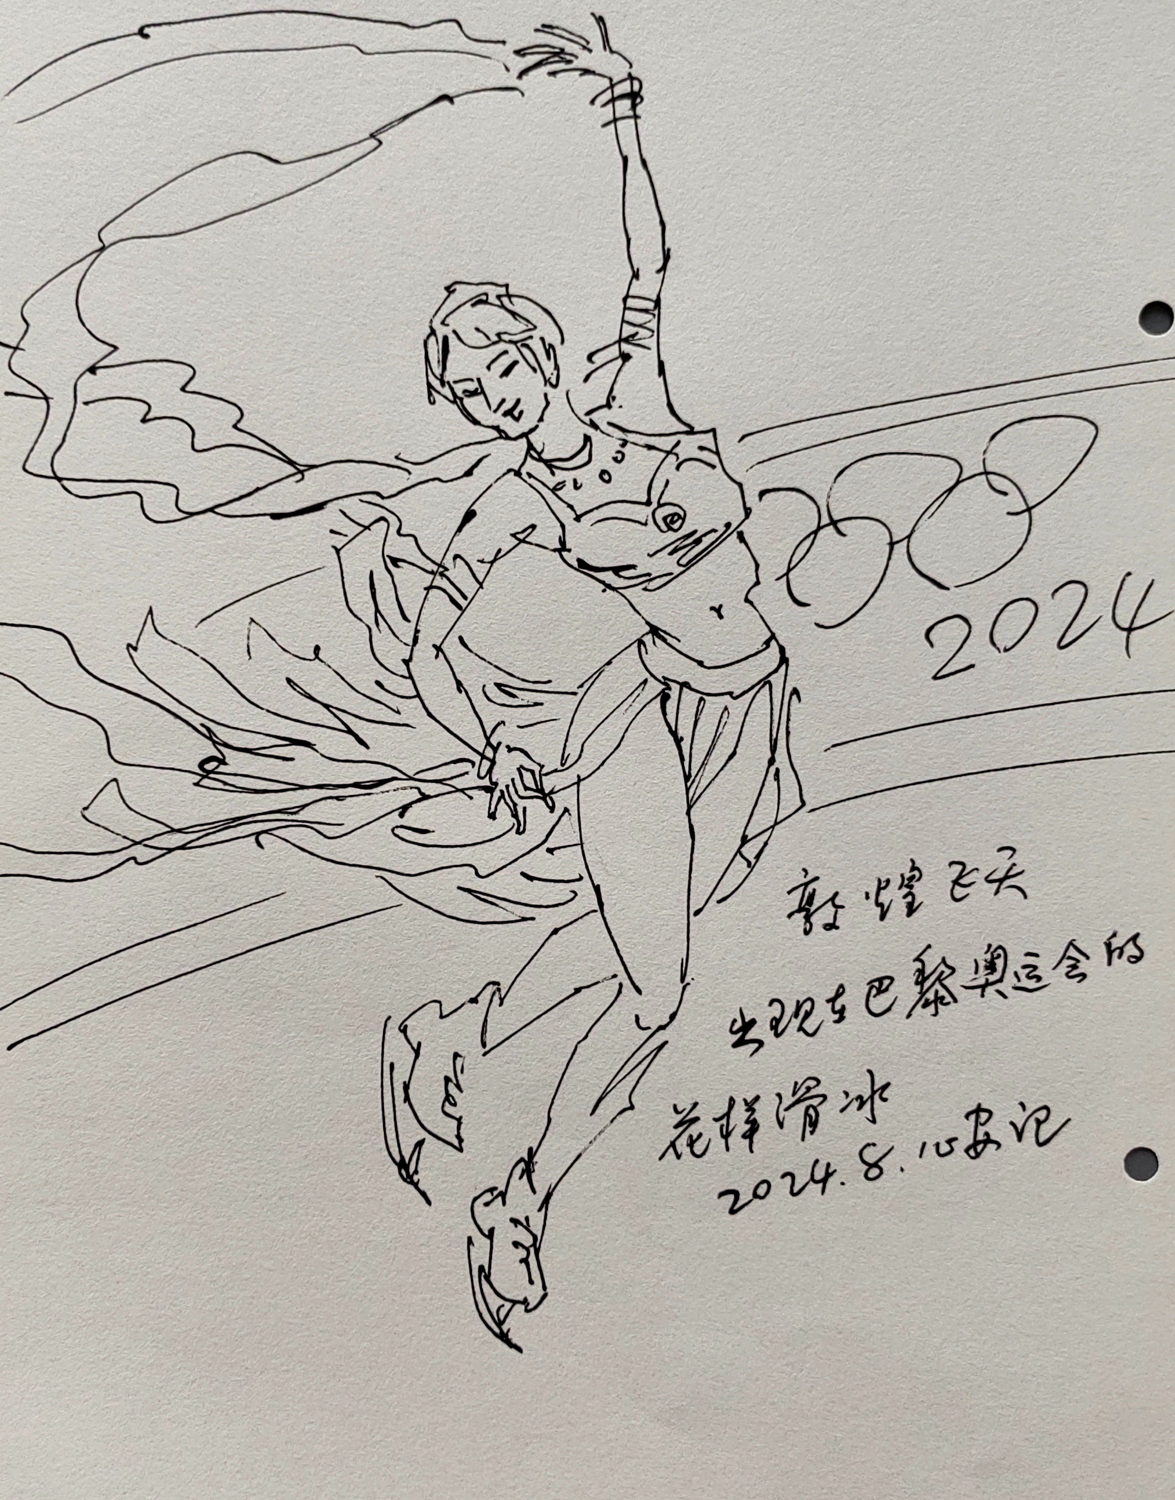 2024
敦煌飞天
出现在巴黎奥运会的
花样滑冰
2024.8.心安记